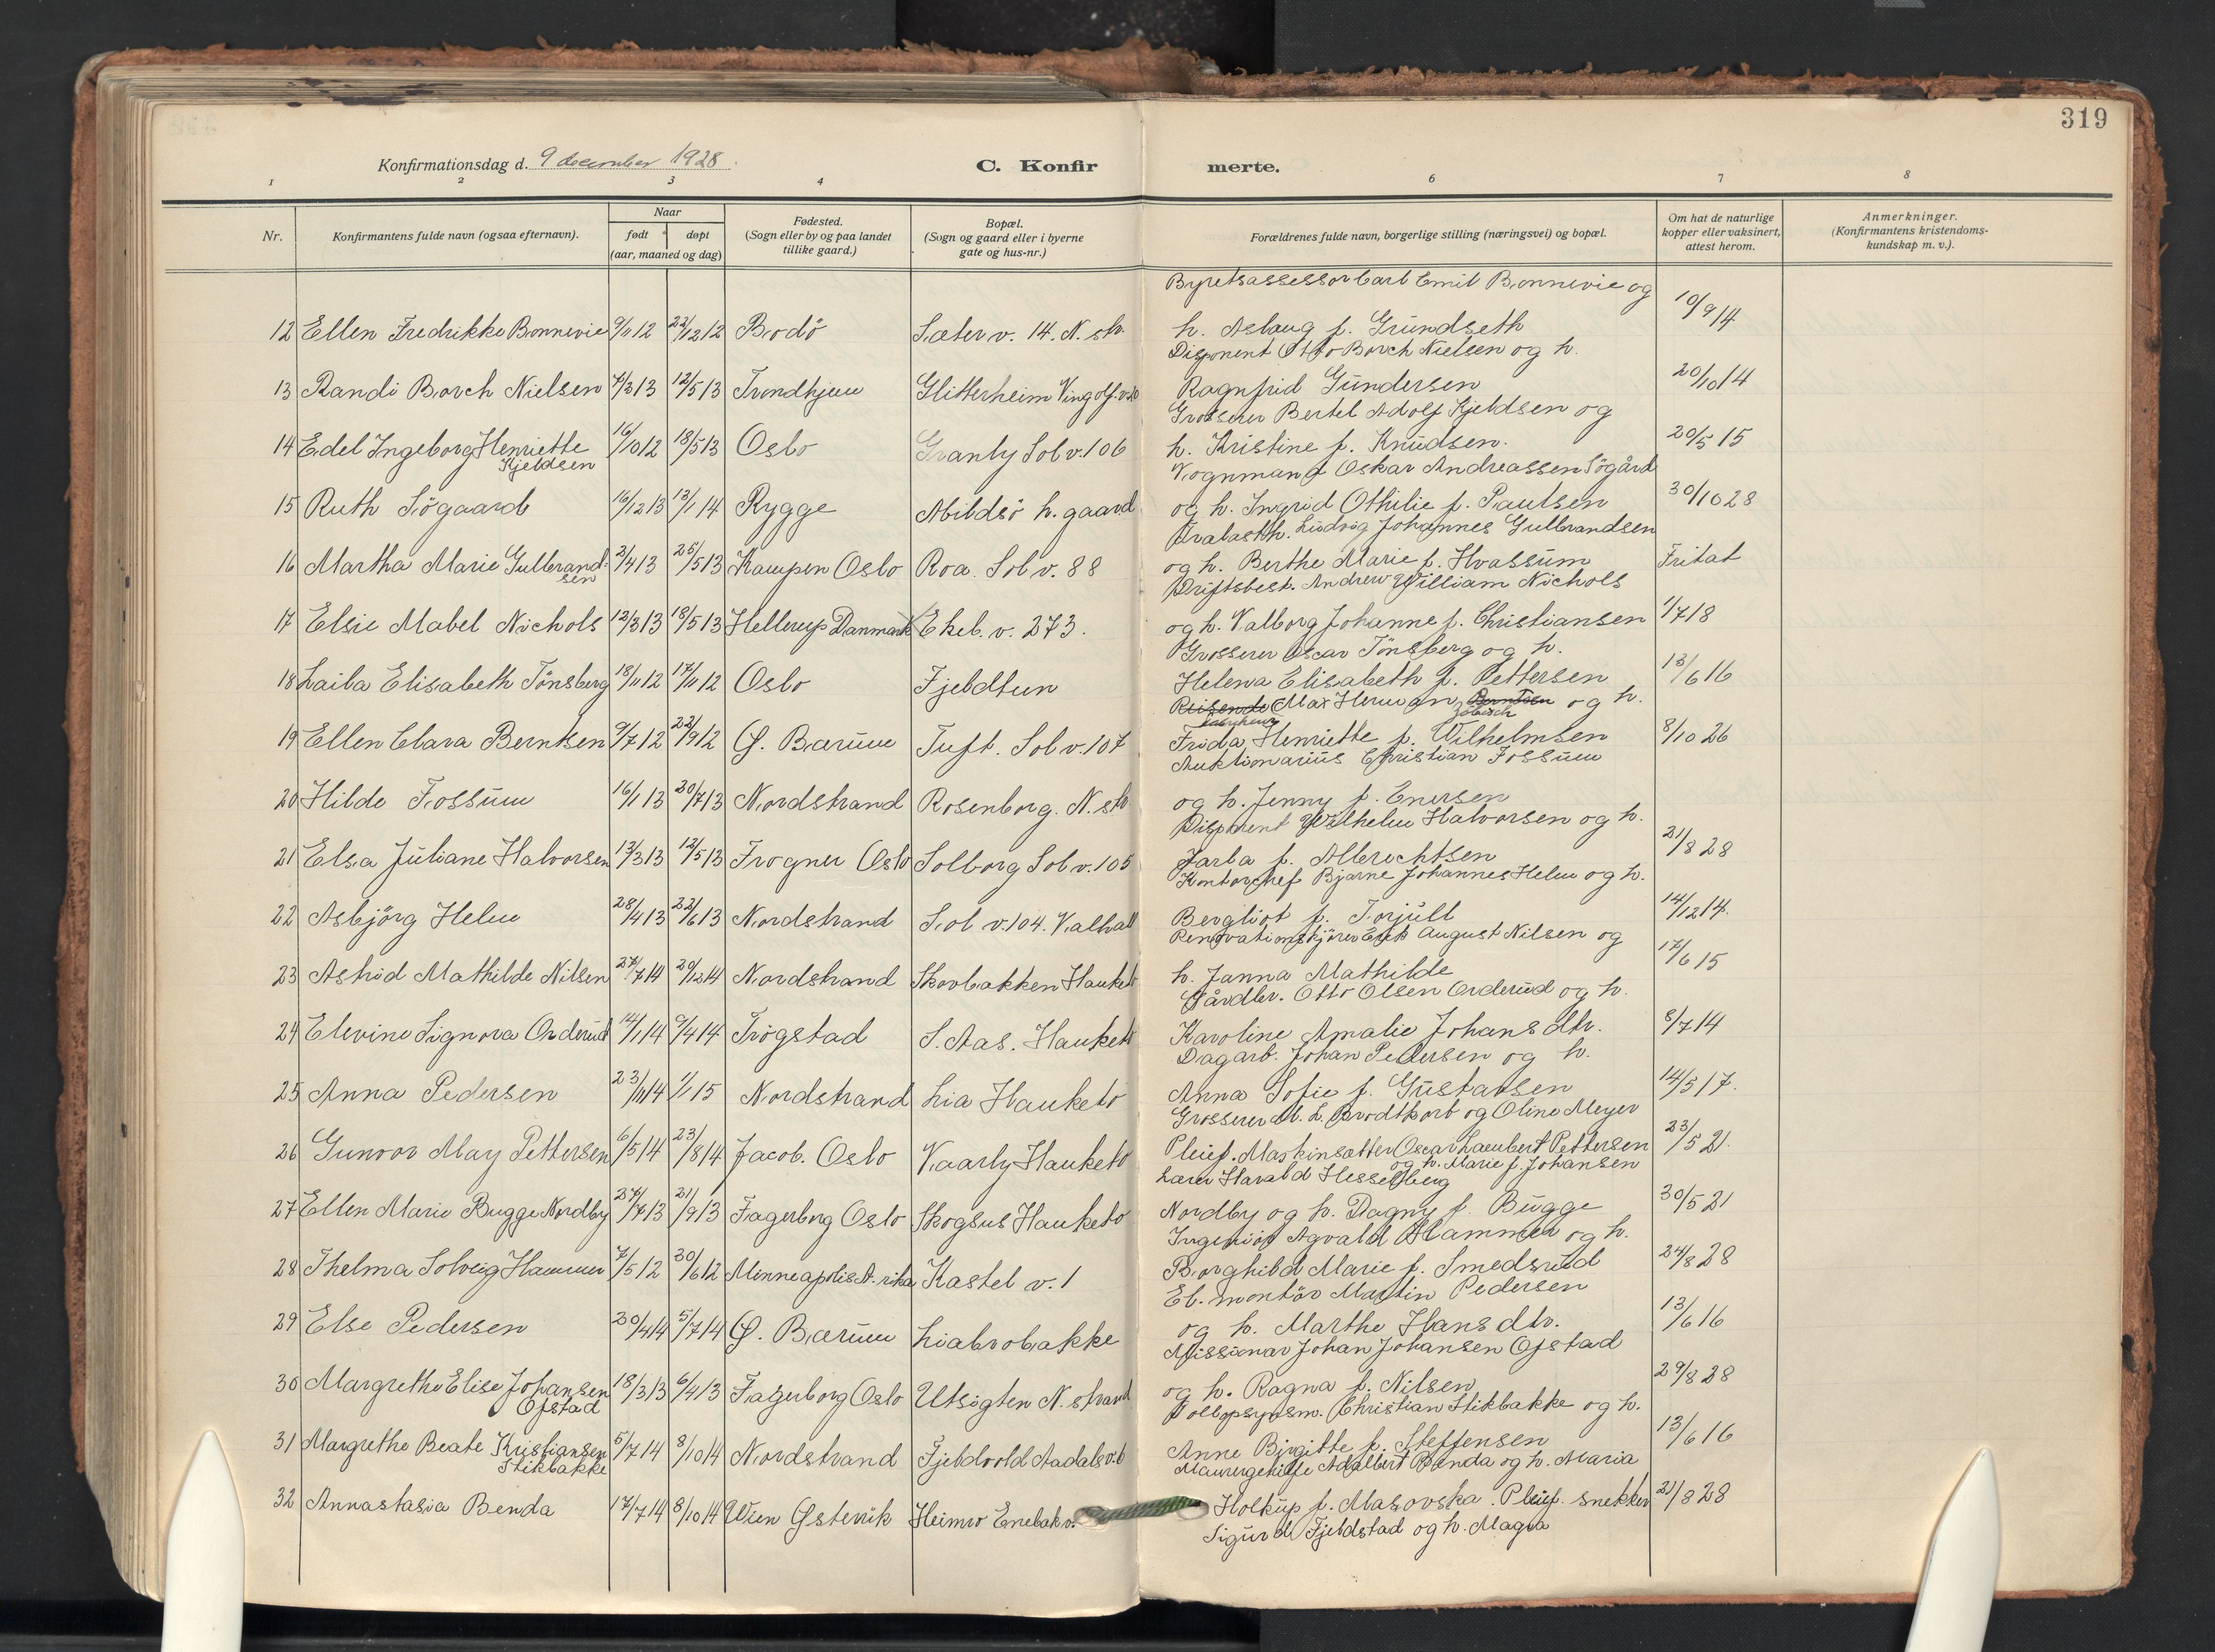 319
Konfirmationsdag d. 9 december 1928.
C. Konfirmerte.
1 2 3 4 6 7 8
Nr.
Konfirmantens fulde navn (ogsaa efternavn).
Naar
født
døpt
(aar, maaned og dag)
Fødested.
(Sogn eller by og paa landet
tillike gaard.)
Bopæl.
(Sogn og gaard eller i byerne
gate og hus-nr.)
Forældrenes fulde navn, borgerlige stilling (næringsvei) og bopæl.
Om hat de naturlige
kopper eller vaksinert,
attest herom.
Anmerkninger.
(Konfirmantens kristendoms-
kundskap m. v.).
Byretsassessor Carl Emil Bonnevie og
12 Ellen Fredrikke Bonnevie 9/11 12 22/12 12 Bodö Sæter v. 14. N. str. h. Aslaug f. Grundseth 10/9 14
Disponent Otto Borch Nielsen og h.
13 Randi Borch Nielsen 7/3 13 12/5 13 Trondhjem Glitterheim Vingolf.v. Ragnfrid Gundersen 20/10 14
Grosserer Bertel Adolf Kjeldsen og
14 Edel Ingeborg Henriette 16/10 12 18/5 13 Oslo Granly Sol v. 106 h. Kristine f. Knudsen. 20/5 15
Kjeldsen
Vognmand Oskar Andreassen Sögård
15 Ruth Sögaard 16/12 13 13/1 14 Rygge Abildsö h. gaard og h. Ingrid Othilie f. Paulsen 30/10 28
Ludvig Johannes Gulbrandsen
16 Martha Marie Gulbrand- 2/4 13 25/5 13 Kampen Oslo Roa. Sol v. 88 og h. Berthe Marie f. Hvassum Fritat
sen
Driftsbest. Andrew William Nichols
17 Elsie Mabel Nichols 12/3 13 18/5 13 Hellerup Danmark Ekeb. v. 273. og h. Valborg Johanne f. Christiansen 1/7 18
Grosserer Oscar Tönsberg og h.
18 Laila Elisabeth Tönsberg 18/11 12 17/11 12 Oslo Fjeldtun Helena Elisabeth f. Pettersen 13/6 16
Reisende Max Herman Berntsen og h.
19 Ellen Clara Berntsen 9/7 12 22/9 12 Ø. Bærum Tuft. Sol v. 107 Frida Henriette f. Wilhelmsen 8/10 26
Auktionarius Christian Fossum
20 Hilde Fossum 16/1 13 20/7 13 Nordstrand Rosenborg. N. str. og h. Jenny f. Enersen
Disponent Wilhelm Halvorsen og h.
21 Elsa Juliane Halvorsen 13/3 13 12/5 13 Frogner Oslo Solborg Sol v. 105 Jarla f. Albrechtsen 21/8 28
Kontorchef Bjarne Johannes Helm og h.
22 Asbjörg Helm 28/4 13 22/6 13 Nordstrand Sol v. 104. Valhall Bergliot f. Torjull 14/12 14.
Renovationskjörer Erik August Nilsen og
23 Astrid Mathilde Nilsen 27/7 14 20/12 14 Nordstrand Skovbakken Hauketo h. Janna Mathilde 17/6 15
Gårdbr. Otto Olsen Orderud og h.
24 Elevine Signora Orderud 14/1 14 9/4 14 Trögstad S. Aas. Hauketo Karoline Amalie Johansdtr. 8/7 14
Dagarb. Johan Pedersen og h.
25 Anna Pedersen 23/11 14 1/1 15 Nordstrand Lia Hauketo Anna Sofie f. Gustavsen 14/5 17.
Grosserer M. L. Brodtkorb og Oline Meyer
26 Gunvor May Pettersen 6/5 14 23/8 14 Jacob. Oslo Vaarly Hauketo Pleief. Maskinsætter Oscar Lambert Pettersen 23/5 21.
og h. Marie f. Johansen
Lærer Harald Hesselberg
27 Ellen Marie Bugge Nordby 27/7 13 21/9 13 Fagerborg Oslo Skogsus Hauketo Nordby og h. Dagny f. Bugge 30/5 21
Ingeniör Agvald Hammer og h.
28 Thelma Solveig Hammer 7/5 12 30/6 12 Minneapolis A.rika Kastel v. 1 Borghild Marie f. Smedsrud 24/8 28
El. montör Martin Pedersen
29 Else Pedersen 20/4 14 5/7 14 Ø. Bærum Liabrobakke og h. Marthe Hansdtr. 13/6 16
Missionær Johan Johansen Ofstad
30 Margrethe Elise Johansen 18/3 13 6/4 13 Fagerborg Oslo Utsigten N. strand og h. Ragna f. Nilsen 29/8 28
Ofstad
Tollopsynsm. Christian Stikbakke og h.
31 Margrethe Beate Kristiansen 5/7 14 8/10 14 Nordstrand Fjeldvold Aadals v. 6 Anne Birgitte f. Steffensen 13/6 16
Stikbakke
Maurergehilfe Adalbert Benda og h. Maria
32 Annastasia Benda 17/7 14 8/10 14 Wien Østerrik Heimro Enebakv. Holkup f. Masovska. Pleief. snekker 21/8 28
Sigurd Fjeldstad og h. Magna